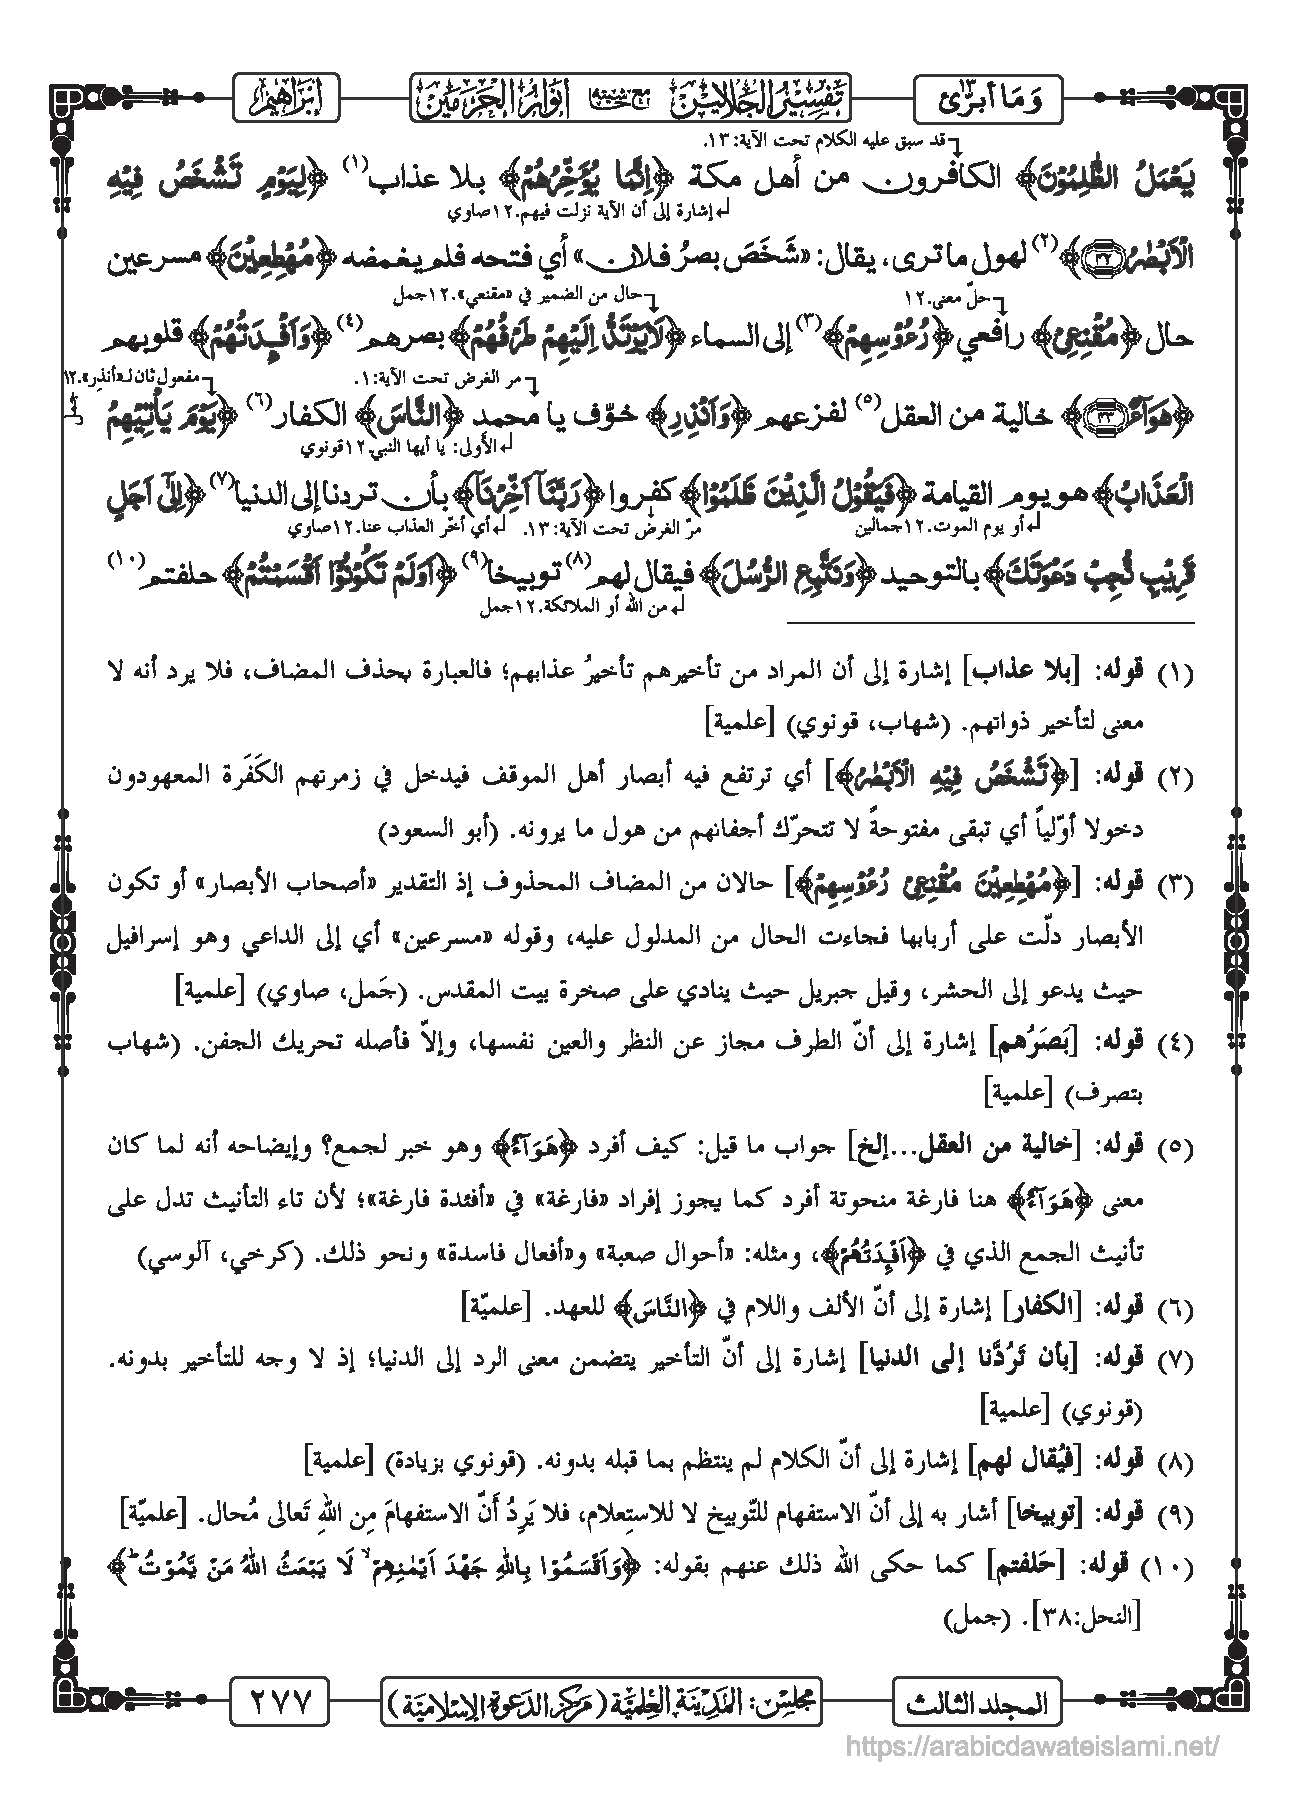 وَمَا أُبَرِّئُ ١٣
تفسير الجلالين مع حاشيته أنوار الحرمين
إبراهيم
قد سبق عليه الكلام تحت الآية: ١٣.
يَعْمَلُ الظّٰلِمُوْنَ﴾ الكافرون من أهل مكة ﴿اِنَّمَا يُؤَخِّرُهُمْ﴾ بلا عذاب(١) ﴿لِيَوْمٍ تَشْخَصُ فِيْهِ
إشارة إلى أن الآية نزلت فيهم.١٢صاوي
الْاَبْصٰرُ ﴿٤٢﴾﴾(٢) لهول ما ترى، يقال: «شَخَصَ بصرُ فلان» أي فتحه فلم يغمضه ﴿مُهْطِعِيْنَ﴾ مسرعين
حلّ معنى.١٢
حال من الضمير في «مقنعي».١٢جمل
حال ﴿مُقْنِعِيْ﴾ رافعي ﴿رُءُوْسِهِمْ﴾(٣) إلى السماء ﴿لَا يَرْتَدُّ اِلَيْهِمْ طَرْفُهُمْ﴾ بصرهم(٤) ﴿وَاَفْـِٕدَتُهُمْ﴾ قلوبهم
مر الغرض تحت الآية:١.
مفعول ثان لـ«أنذِر».١٢ جمل
﴿هَوَآءٌ ﴿٤٣﴾﴾ خالية من العقل(٥) لفزعهم ﴿وَاَنْذِرِ﴾ خوّف يا محمد ﴿النَّاسَ﴾ الكفار(٦) ﴿يَوْمَ يَاْتِيْهِمُ
الأولى: يا أيها النبي.١٢قونوي
الْعَذَابُ﴾ هو يوم القيامة ﴿فَيَقُوْلُ الَّذِيْنَ ظَلَمُوْا﴾ كفروا ﴿رَبَّنَآ اَخِّرْنَآ﴾ بأن تردنا إلى الدنيا(٧) ﴿اِلٰۤى اَجَلٍ
أو يوم الموت.١٢جمالين
مرّ الغرض تحت الآية: ١٣.
أي أخّر العذاب عنا.١٢صاوي
قَرِيْبٍ نُّجِبْ دَعْوَتَكَ﴾ بالتوحيد ﴿وَنَتَّبِعِ الرُّسُلَ﴾ فيقال لهم(٨) توبيخا(٩) ﴿اَوَلَمْ تَكُوْنُوْۤا اَقْسَمْتُمْ﴾ حلفتم(١٠)
من الله أو الملائكة.١٢جمل
(١) قوله: [بلا عذاب] إشارة إلى أن المراد من تأخيرهم تأخيرُ عذابهم؛ فالعبارة بحذف المضاف، فلا يرد أنه لا
معنى لتأخير ذواتهم. (شهاب، قونوي) [علمية]
(٢) قوله: [﴿تَشْخَصُ فِيْهِ الْاَبْصٰرُ﴾] أي ترتفع فيه أبصار أهل الموقف فيدخل في زمرتهم الكَفَرة المعهودون
دخولا أوّلياً أي تبقى مفتوحةً لا تتحرّك أجفانهم من هول ما يرونه. (أبو السعود)
(٣) قوله: [﴿مُهْطِعِيْنَ مُقْنِعِيْ رُءُوْسِهِمْ﴾] حالان من المضاف المحذوف إذ التقدير «أصحاب الأبصار» أو تكون
الأبصار دلّت على أربابها فجاءت الحال من المدلول عليه، وقوله «مسرعين» أي إلى الداعي وهو إسرافيل
حيث يدعو إلى الحشر، وقيل جبريل حيث ينادي على صخرة بيت المقدس. (جَمل، صاوي) [علمية]
(٤) قوله: [بَصَرُهم] إشارة إلى أنّ الطرف مجاز عن النظر والعين نفسها، وإلاّ فأصله تحريك الجفن. (شهاب
بتصرف) [علمية]
(٥) قوله: [خالية من العقل...إلخ] جواب ما قيل: كيف أفرد ﴿هَوَآءٌ﴾ وهو خبر لجمع؟ وإيضاحه أنه لما كان
معنى ﴿هَوَآءٌ﴾ هنا فارغة منحوتة أفرد كما يجوز إفراد «فارغة» في «أفئدة فارغة»؛ لأن تاء التأنيث تدل على
تأنيث الجمع الذي في ﴿اَفْـِٕدَتُهُمْ﴾، ومثله: «أحوال صعبة» و«أفعال فاسدة» ونحو ذلك. (كرخي، آلوسي)
(٦) قوله: [الكفار] إشارة إلى أنّ الألف واللام في ﴿النَّاسَ﴾ للعهد. [علميّة]
(٧) قوله: [بأن تَرُدَّنا إلى الدنيا] إشارة إلى أنّ التأخير يتضمن معنى الرد إلى الدنيا؛ إذ لا وجه للتأخير بدونه.
(قونوي) [علمية]
(٨) قوله: [فيُقال لهم] إشارة إلى أنّ الكلام لم ينتظم بما قبله بدونه. (قونوي بزيادة) [علمية]
(٩) قوله: [توبيخا] أشار به إلى أنّ الاستفهام للتّوبيخ لا للاستِعلام، فلا يَرِدُ أَنّ الاستفهامَ مِن اللهِ تَعالى مُحال. [علميّة]
(١٠) قوله: [حَلفتم] كما حكى الله ذلك عنهم بقوله: ﴿وَاَقْسَمُوْا بِاللهِ جَهْدَ اَيْمٰنِهِمْ ۙ لَا يَبْعَثُ اللهُ مَنْ يَّمُوْتُ ؕ﴾
[النحل:٣٨]. (جمل)
المجلد الثالث
مجلس: المدينة العلمية (مركز الدعوة الإسلامية)
٢٧٧
https://arabicdawateislami.net/